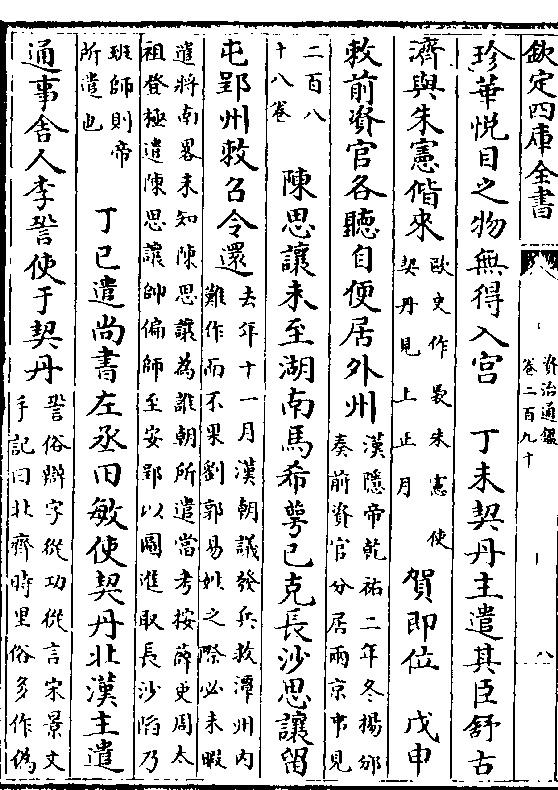 欽定四庫全書
資治通鑑
卷二百九十
八
珍華悅目之物無得入宮　丁未契丹主遣其臣褭古
濟與朱憲偕來歐史作裊朱憲使
契丹見上正月賀即位　戊申
敕前資官各聽自便居外州漢隱帝乾祐二年冬揚邠
奏前資官分居兩京事見
二百八
十八卷　陳思讓未至湖南馬希萼已克長沙思讓留
屯郢州敕召令還去年十一月漢朝議發兵救潭州内
難作而不果劉郭易姓之際必未暇
遣將南畧未知陳思讓為誰朝所遣當考按薛史周太
祖登極遣陳思讓帥偏師至安郢以圖進取長沙陷乃
班師則帝
所遣也　丁巳遣尚書左丞田敏使契丹北漢主遣
通事舍人李㖷使于契丹㖷俗辯字從功從言宋景文
手記曰北齊時里俗多作偽